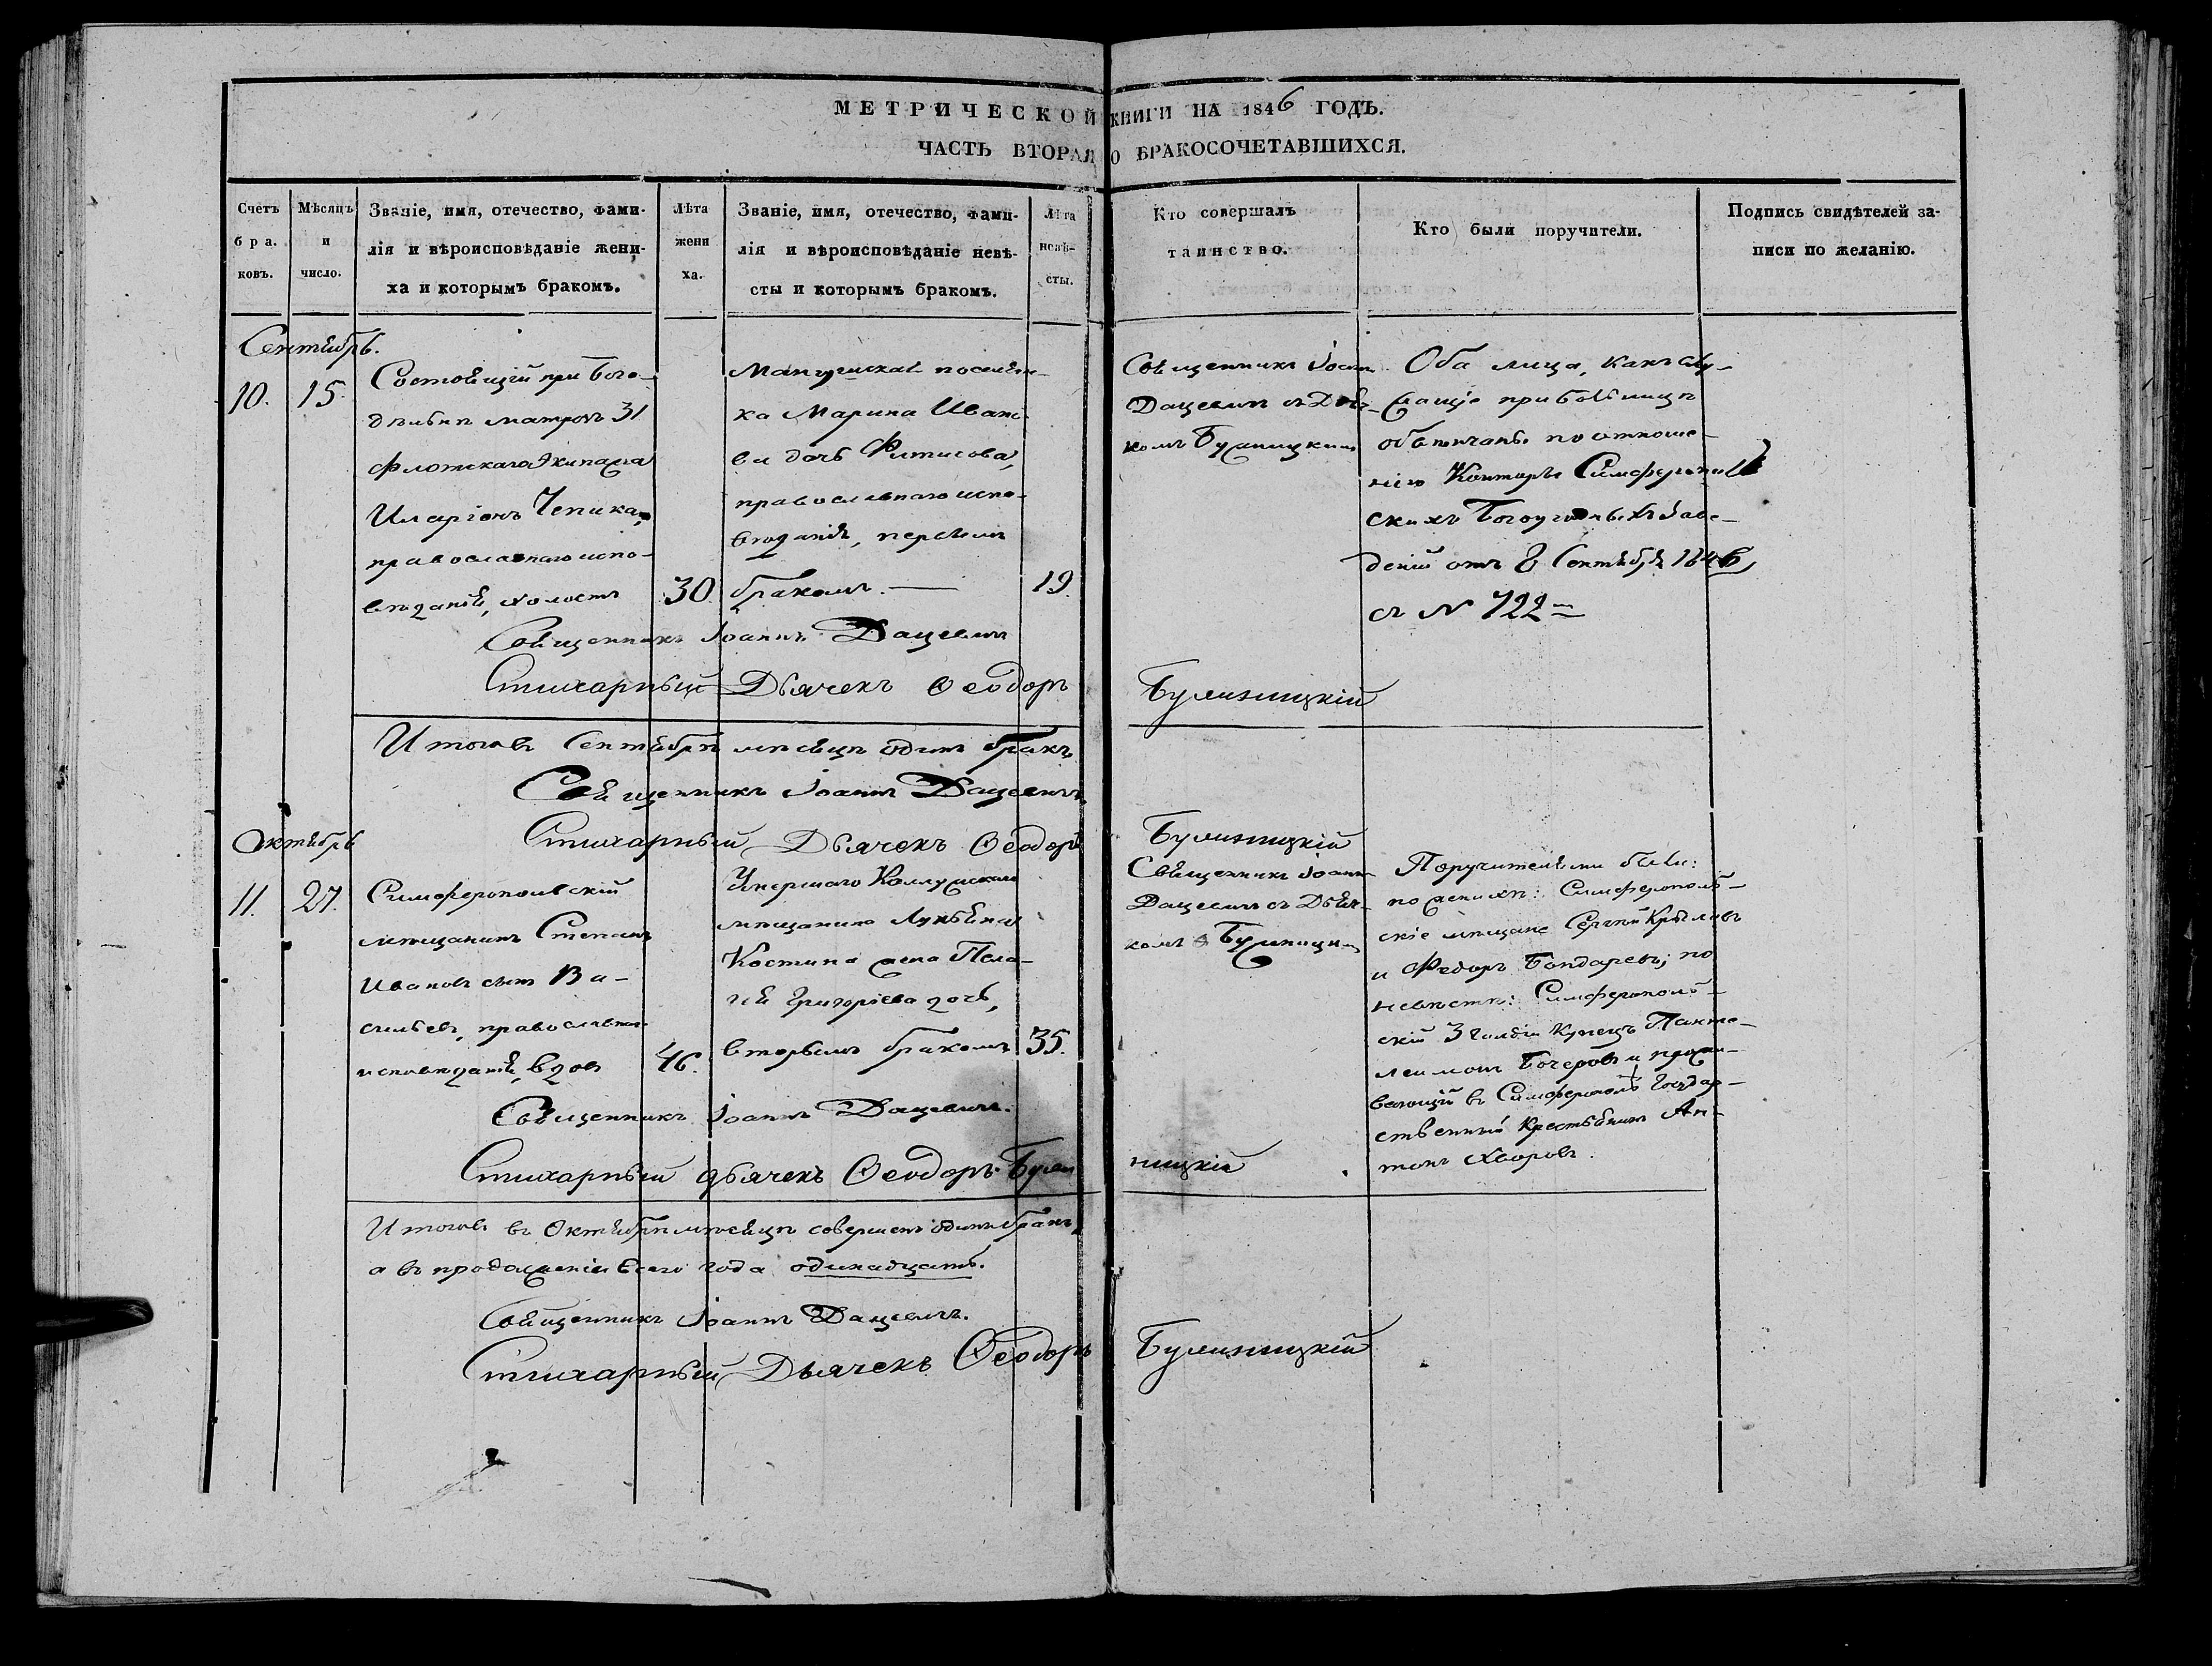 МЕТРИЧЕСКОЙ КНИГИ НА 1846 ГОДЪ.
ЧАСТЬ ВТОРАЯ О БРАКОСОЧЕТАВШИХСЯ.
Счетъ
бра.
ковъ.
Мѣсяцъ
и
число.
Званіе, имя, отечество, фами-
лія и вѣроисповѣданіе жени-
ха и которымъ бракомъ.
Лѣта
жени
ха.
Званіе, имя, отечество, фами-
лія и вѣроисповѣданіе невѣ-
сты и которымъ бракомъ.
Лѣта
невѣ-
сты.
Кто совершалъ
таинство.
Кто были поручители.
Подпись свидѣтелей за-
писи по желанію.
Сентябрь.
10.
15.
Состоящій при Бого-
дѣльнѣ матросъ 31
Флотскаго Экипажа
Иларіонъ Чепика,
православнаго испо-
вѣданія, холостъ
30.
Мангушская поселян-
ка Марина Ивано-
ва дочь
православнаго испо-
вѣданія, первымъ
бракомъ.
19.
Священникъ Іоаннъ
Дацевичъ съ Дьяч-
комъ
Оба лица, какъ слу-
жащіе при больницѣ
обвѣнчаны по отноше-
нію Конторы Симферополь
скихъ Богоугодныхъ Заве-
деній отъ 8 Сентября 1846,
съ N 722
Священникъ Іоаннъ Дацевичъ
Стихарный Дьячекъ Ѳеодоръ Булизницкій
Итого въ Сентябрѣ мѣсяцѣ одинъ бракъ
Священникъ Іоаннъ Дацевичъ.
Стихарный Дьячекъ Ѳеодоръ Булизницкій
Октябрь
11.
27.
Симферопольскій
мѣщанинъ Степанъ
Ивановъ сынъ Ва-
сильевъ, православнаго
исповѣданія, вдовъ
46.
Умершаго
мѣщанина Лукьяна
Костина жена Пела-
гія Григоріева дочь,
вторымъ бракомъ
35.
Священникъ Іоаннъ
Дацевичъ съ Дьяч-
комъ
Поручителями были:
по женихѣ: Симферополь-
скіе мѣщане Сергѣй Крыловъ
и Федоръ Бондаревъ; по
невѣстѣ: Симферополь-
скій 3 гильдіи Купецъ Панте-
леимонъ Бочеровъ и прожи-
вающій въ Симферополѣ Государ-
ственный Крестьянинъ Ан-
тонъ Хворовъ.
Священникъ Іоаннъ Дацевичъ.
Стихарный дьячекъ Ѳеодоръ Були ницкій
Итого въ Октябрѣ мѣсяцѣ совершенъ одинъ бракъ,
а въ продолженіи всего года одинадцать.
Священникъ Іоаннъ Дацевичъ.
Стихарный Дьячекъ Ѳеодоръ Булизницкій